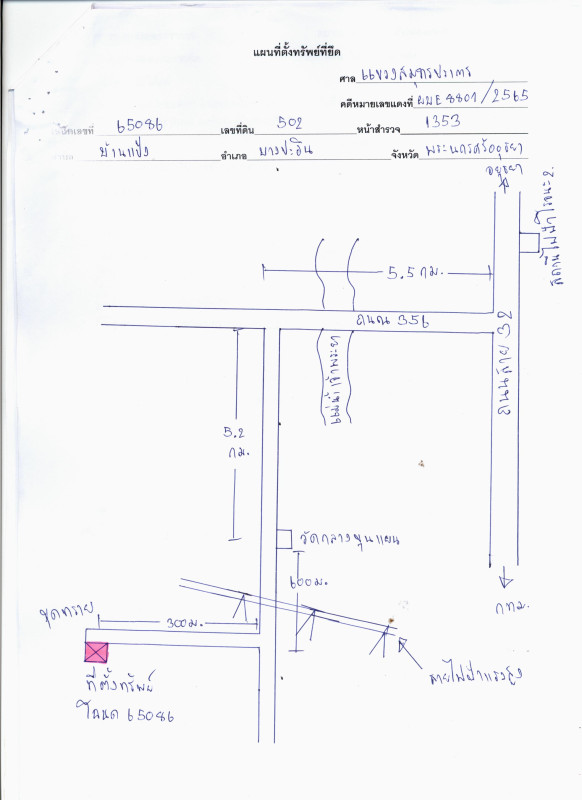 แผนที่ตั้งทรัพย์ที่ยึด
ศาล แขวงสมุทรปราการ
คดีหมายเลขแดงที่ ผบE8801/2565
เลขที่ 65086 เลขที่ดิน 502 หน้าสำรวจ 1353
บ้านแป้ง อำเภอ บางปะอิน จังหวัด พระนครศรีอยุธยา
อยุธยา
สถานีไฟฟ้าโรจนะ 2.
5.5 กม.
ถนน 356
ถนนสาย 32
แม่น้ำเจ้าพระยา
5.2
กม.
วัดกลางขุนแผน
600ม.
กทม.
300ม.
สายไฟฟ้าแรงสูง
ที่ตั้งทรัพย์
โฉนด 65086